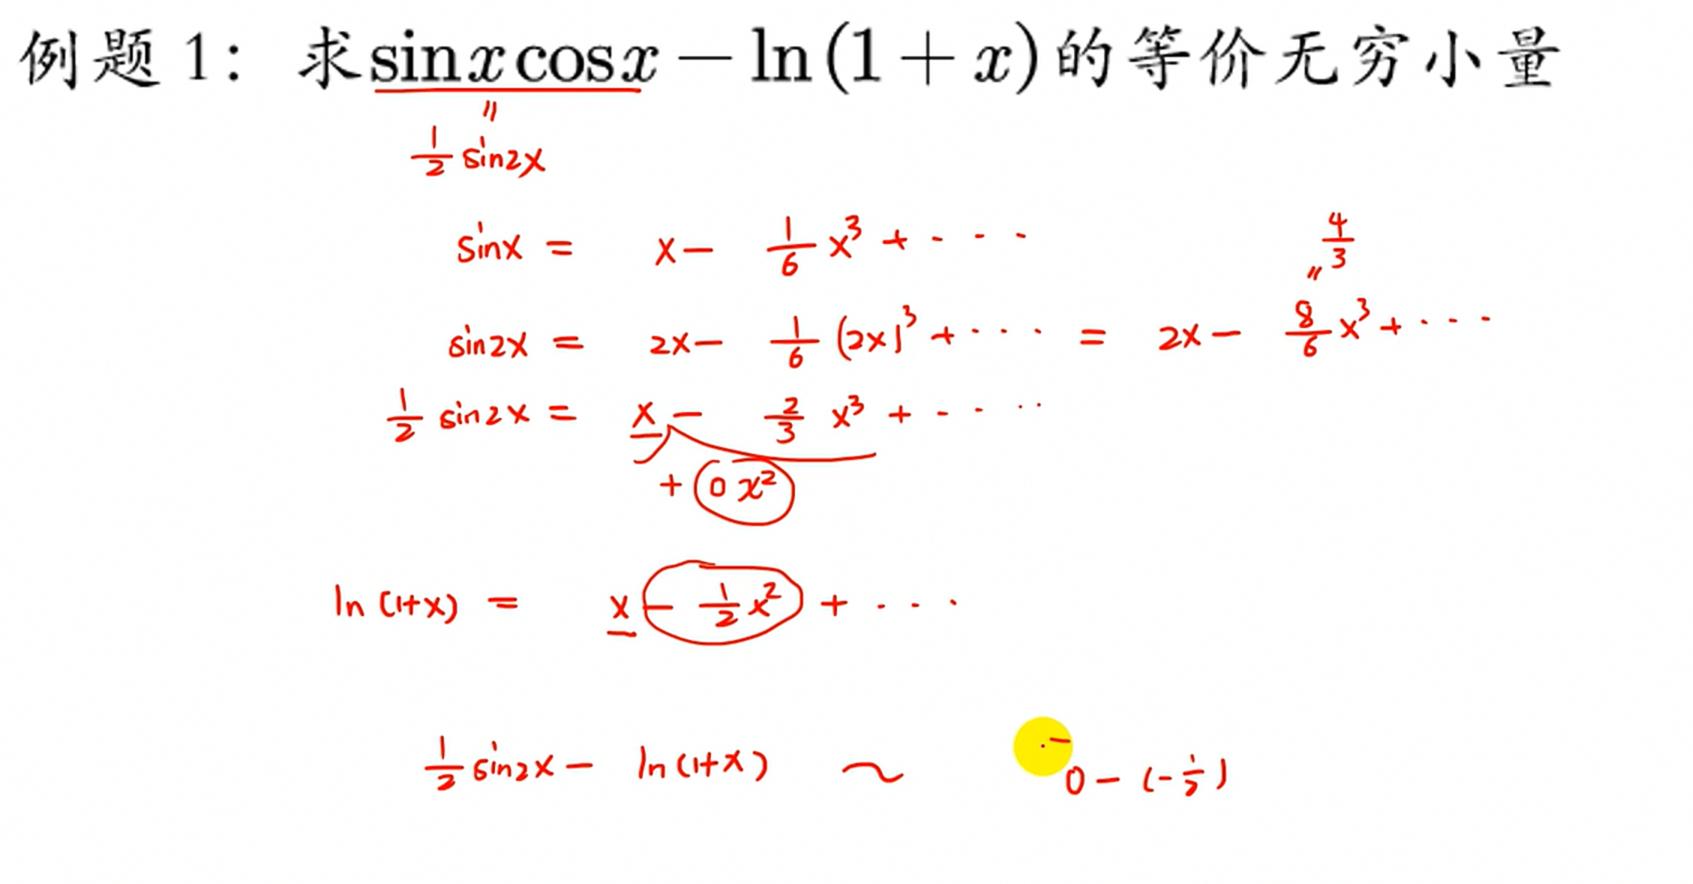 例题 1: 求sin x cos x − ln (1 + x)的等价无穷小量
=
1/2 sin2x
sinx = x − 1/6 x³ + · · · ·
4/3
=
sin2x = 2x − 1/6 (2x)³ + · · · · = 2x − 8/6 x³ + · · · ·
1/2 sin2x = x − 2/3 x³ + · · · ·
+ 0x²
ln (1+x) = x − 1/2 x² + · · ·
1/2 sin2x − ln(1+x) ~ 0 − (−1/2)